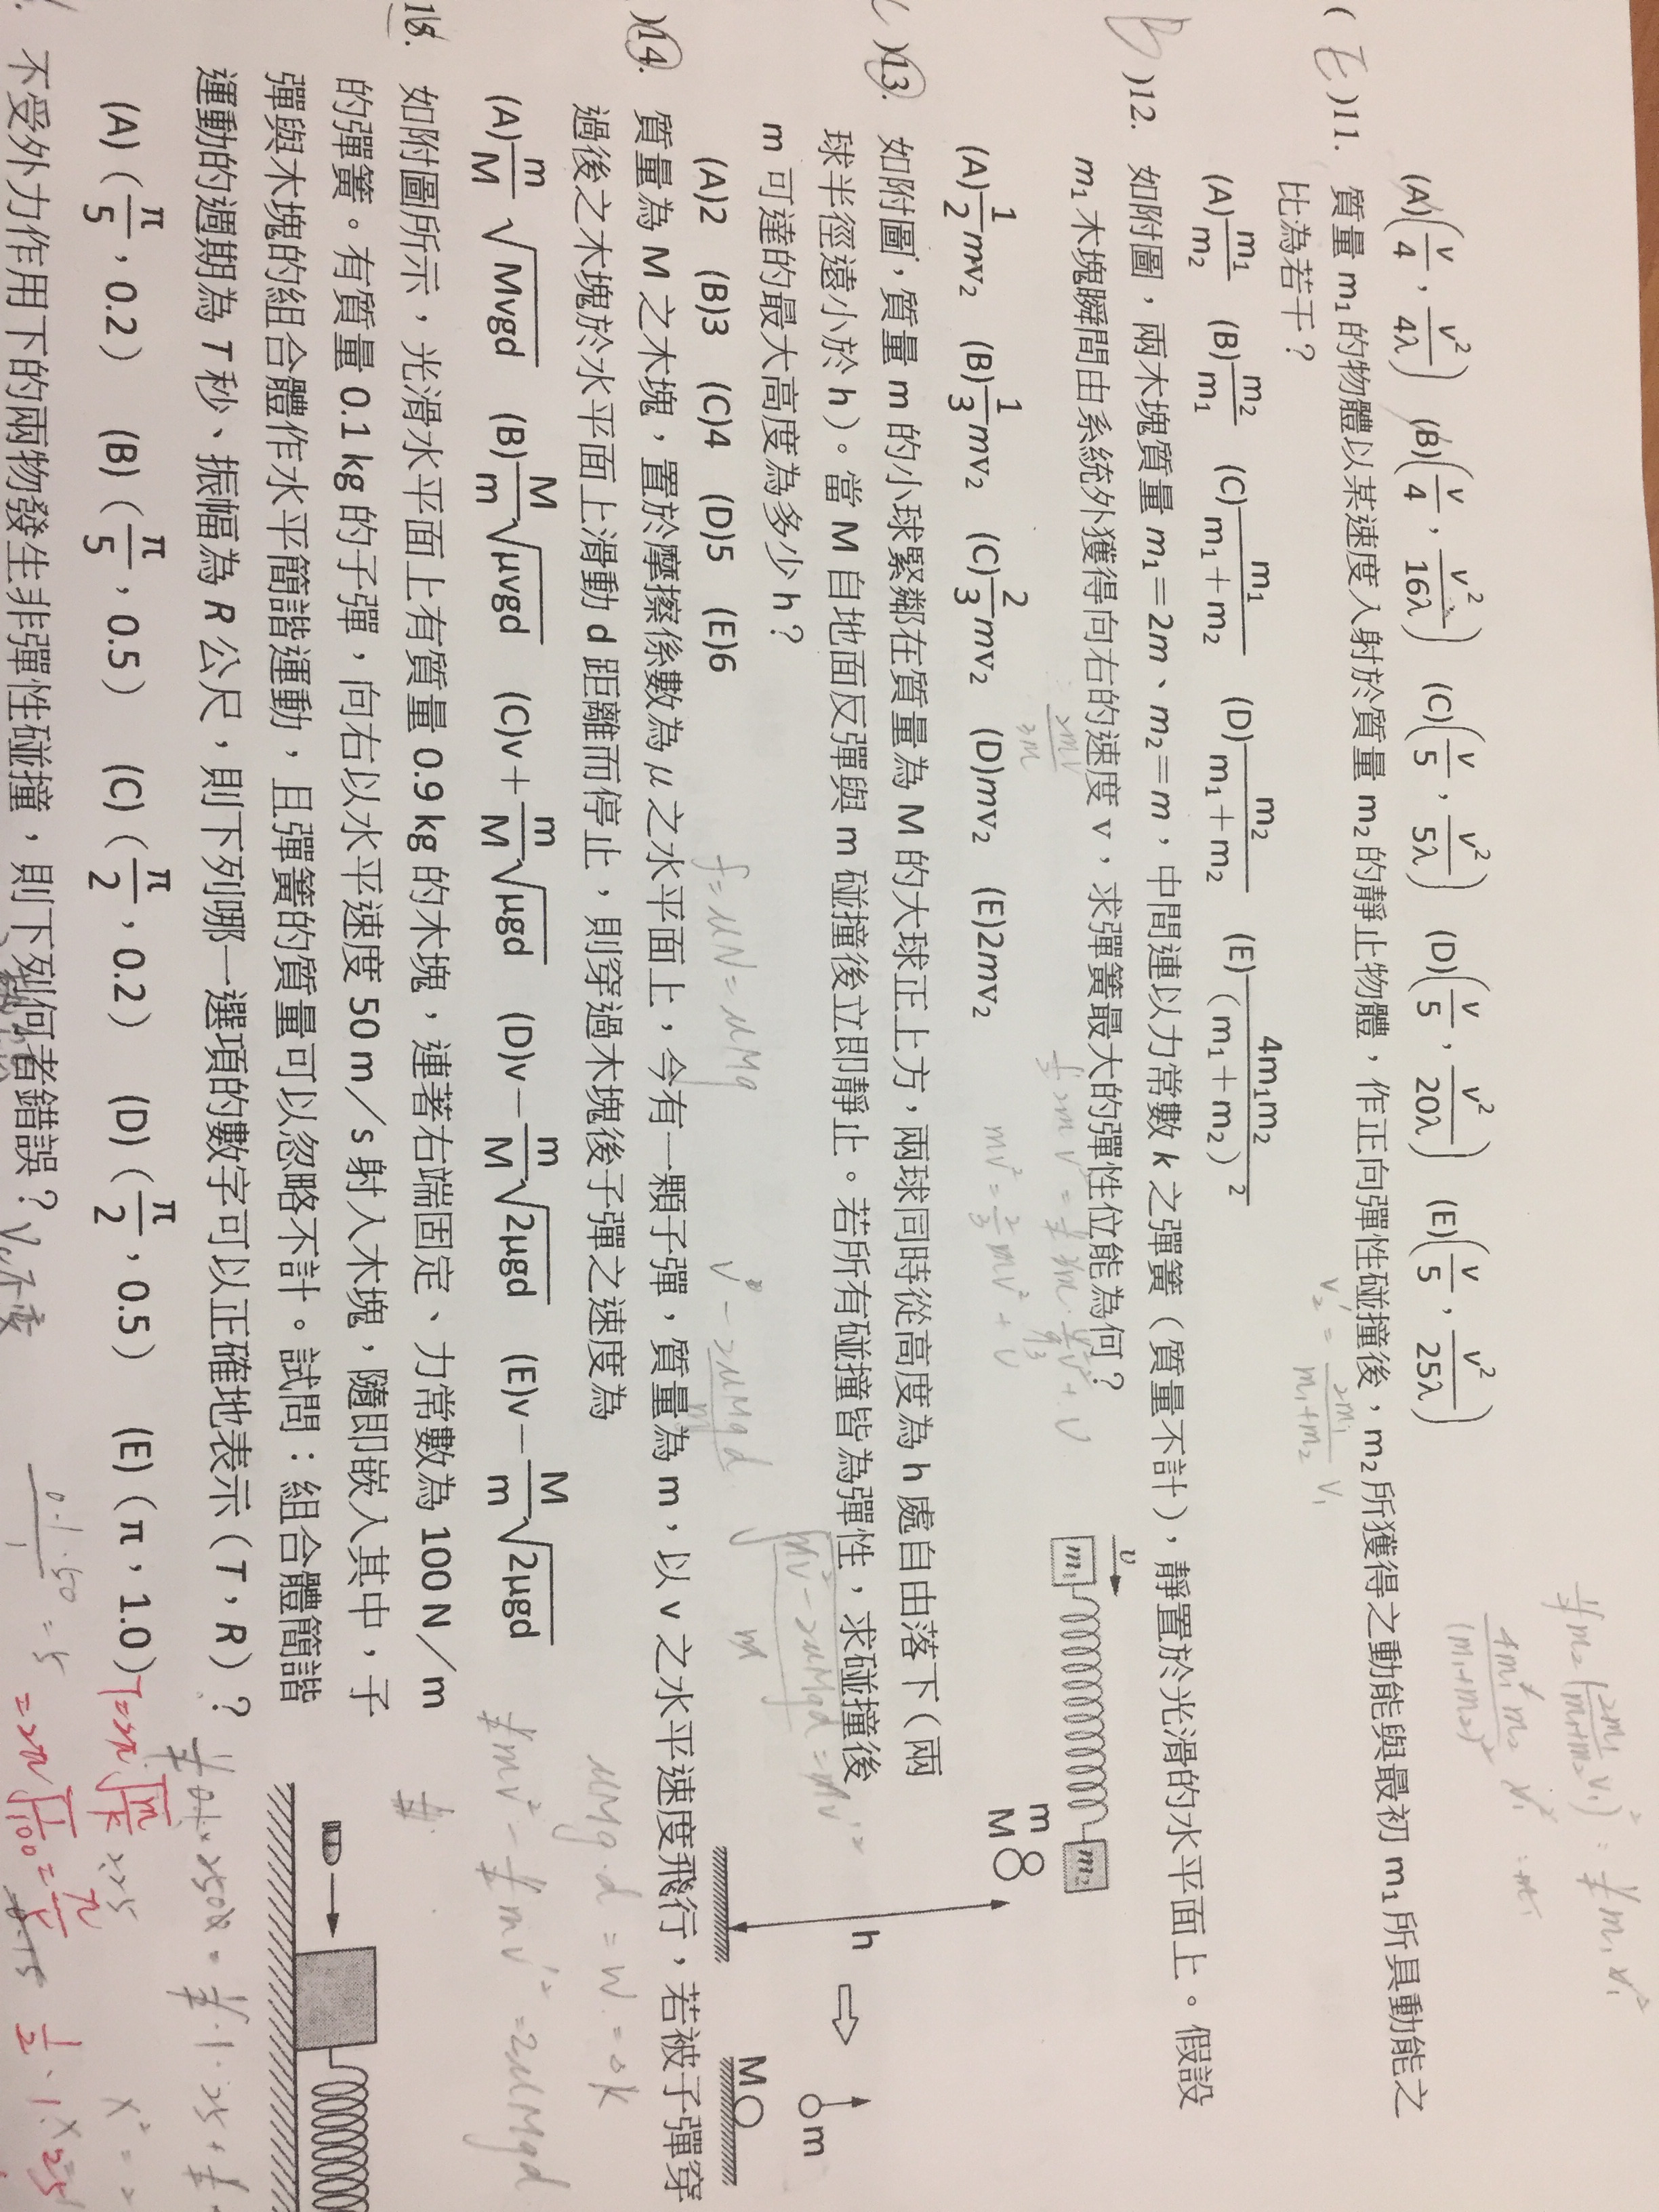 (A)(v/4，v²/4λ) (B)(v/4，v²/16λ) (C)(v/5，v²/5λ) (D)(v/5，v²/20λ) (E)(v/5，v²/25λ)
( E )11. 質量 m₁ 的物體以某速度入射於質量 m₂ 的靜止物體，作正向彈性碰撞後，m₂ 所獲得之動能與最初 m₁ 所具動能之
比為若干？
(A)m₁/m₂ (B)m₂/m₁ (C)m₁/(m₁＋m₂) (D)m₂/(m₁＋m₂) (E)4m₁m₂/(m₁＋m₂)²
v₂' = 2m₁/(m₁+m₂) v₁
)12. 如附圖，兩木塊質量 m₁＝2m、m₂＝m，中間連以力常數 k 之彈簧（質量不計），靜置於光滑的水平面上。假設
m₁ 木塊瞬間由系統外獲得向右的速度 v，求彈簧最大的彈性位能為何？
υ
m₁ m₂
(A)1/2mv² (B)1/3mv² (C)2/3mv² (D)mv² (E)2mv²
)13. 如附圖，質量 m 的小球緊鄰在質量為 M 的大球正上方，兩球同時從高度為 h 處自由落下（兩
球半徑遠小於 h）。當 M 自地面反彈與 m 碰撞後立即靜止。若所有碰撞皆為彈性，求碰撞後
m 可達的最大高度為多少 h？
m
M
h
m
M
(A)2 (B)3 (C)4 (D)5 (E)6
f=μN=μMg
)14. 質量為 M 之木塊，置於摩擦係數為 μ 之水平面上，今有一顆子彈，質量為 m，以 v 之水平速度飛行，若被子彈穿
過後之木塊於水平面上滑動 d 距離而停止，則穿過木塊後子彈之速度為
μMg·d = W = ΔK
(A)m/M √Mvgd (B)M/m √μvgd (C)v＋m/M √μgd (D)v－m/M √2μgd (E)v－M/m √2μgd
15. 如附圖所示，光滑水平面上有質量 0.9 kg 的木塊，連著右端固定、力常數為 100 N／m
的彈簧。有質量 0.1 kg 的子彈，向右以水平速度 50 m／s 射入木塊，隨即嵌入其中，子
彈與木塊的組合體作水平簡諧運動，且彈簧的質量可以忽略不計。試問：組合體簡諧
運動的週期為 T 秒、振幅為 R 公尺，則下列哪一選項的數字可以正確地表示（T，R）？
(A)（π/5，0.2） (B)（π/5，0.5） (C)（π/2，0.2） (D)（π/2，0.5） (E)（π，1.0）
T=2π√m/k
=2π√1/100=π/5
不受外力作用下的兩物發生非彈性碰撞，則下列何者錯誤？